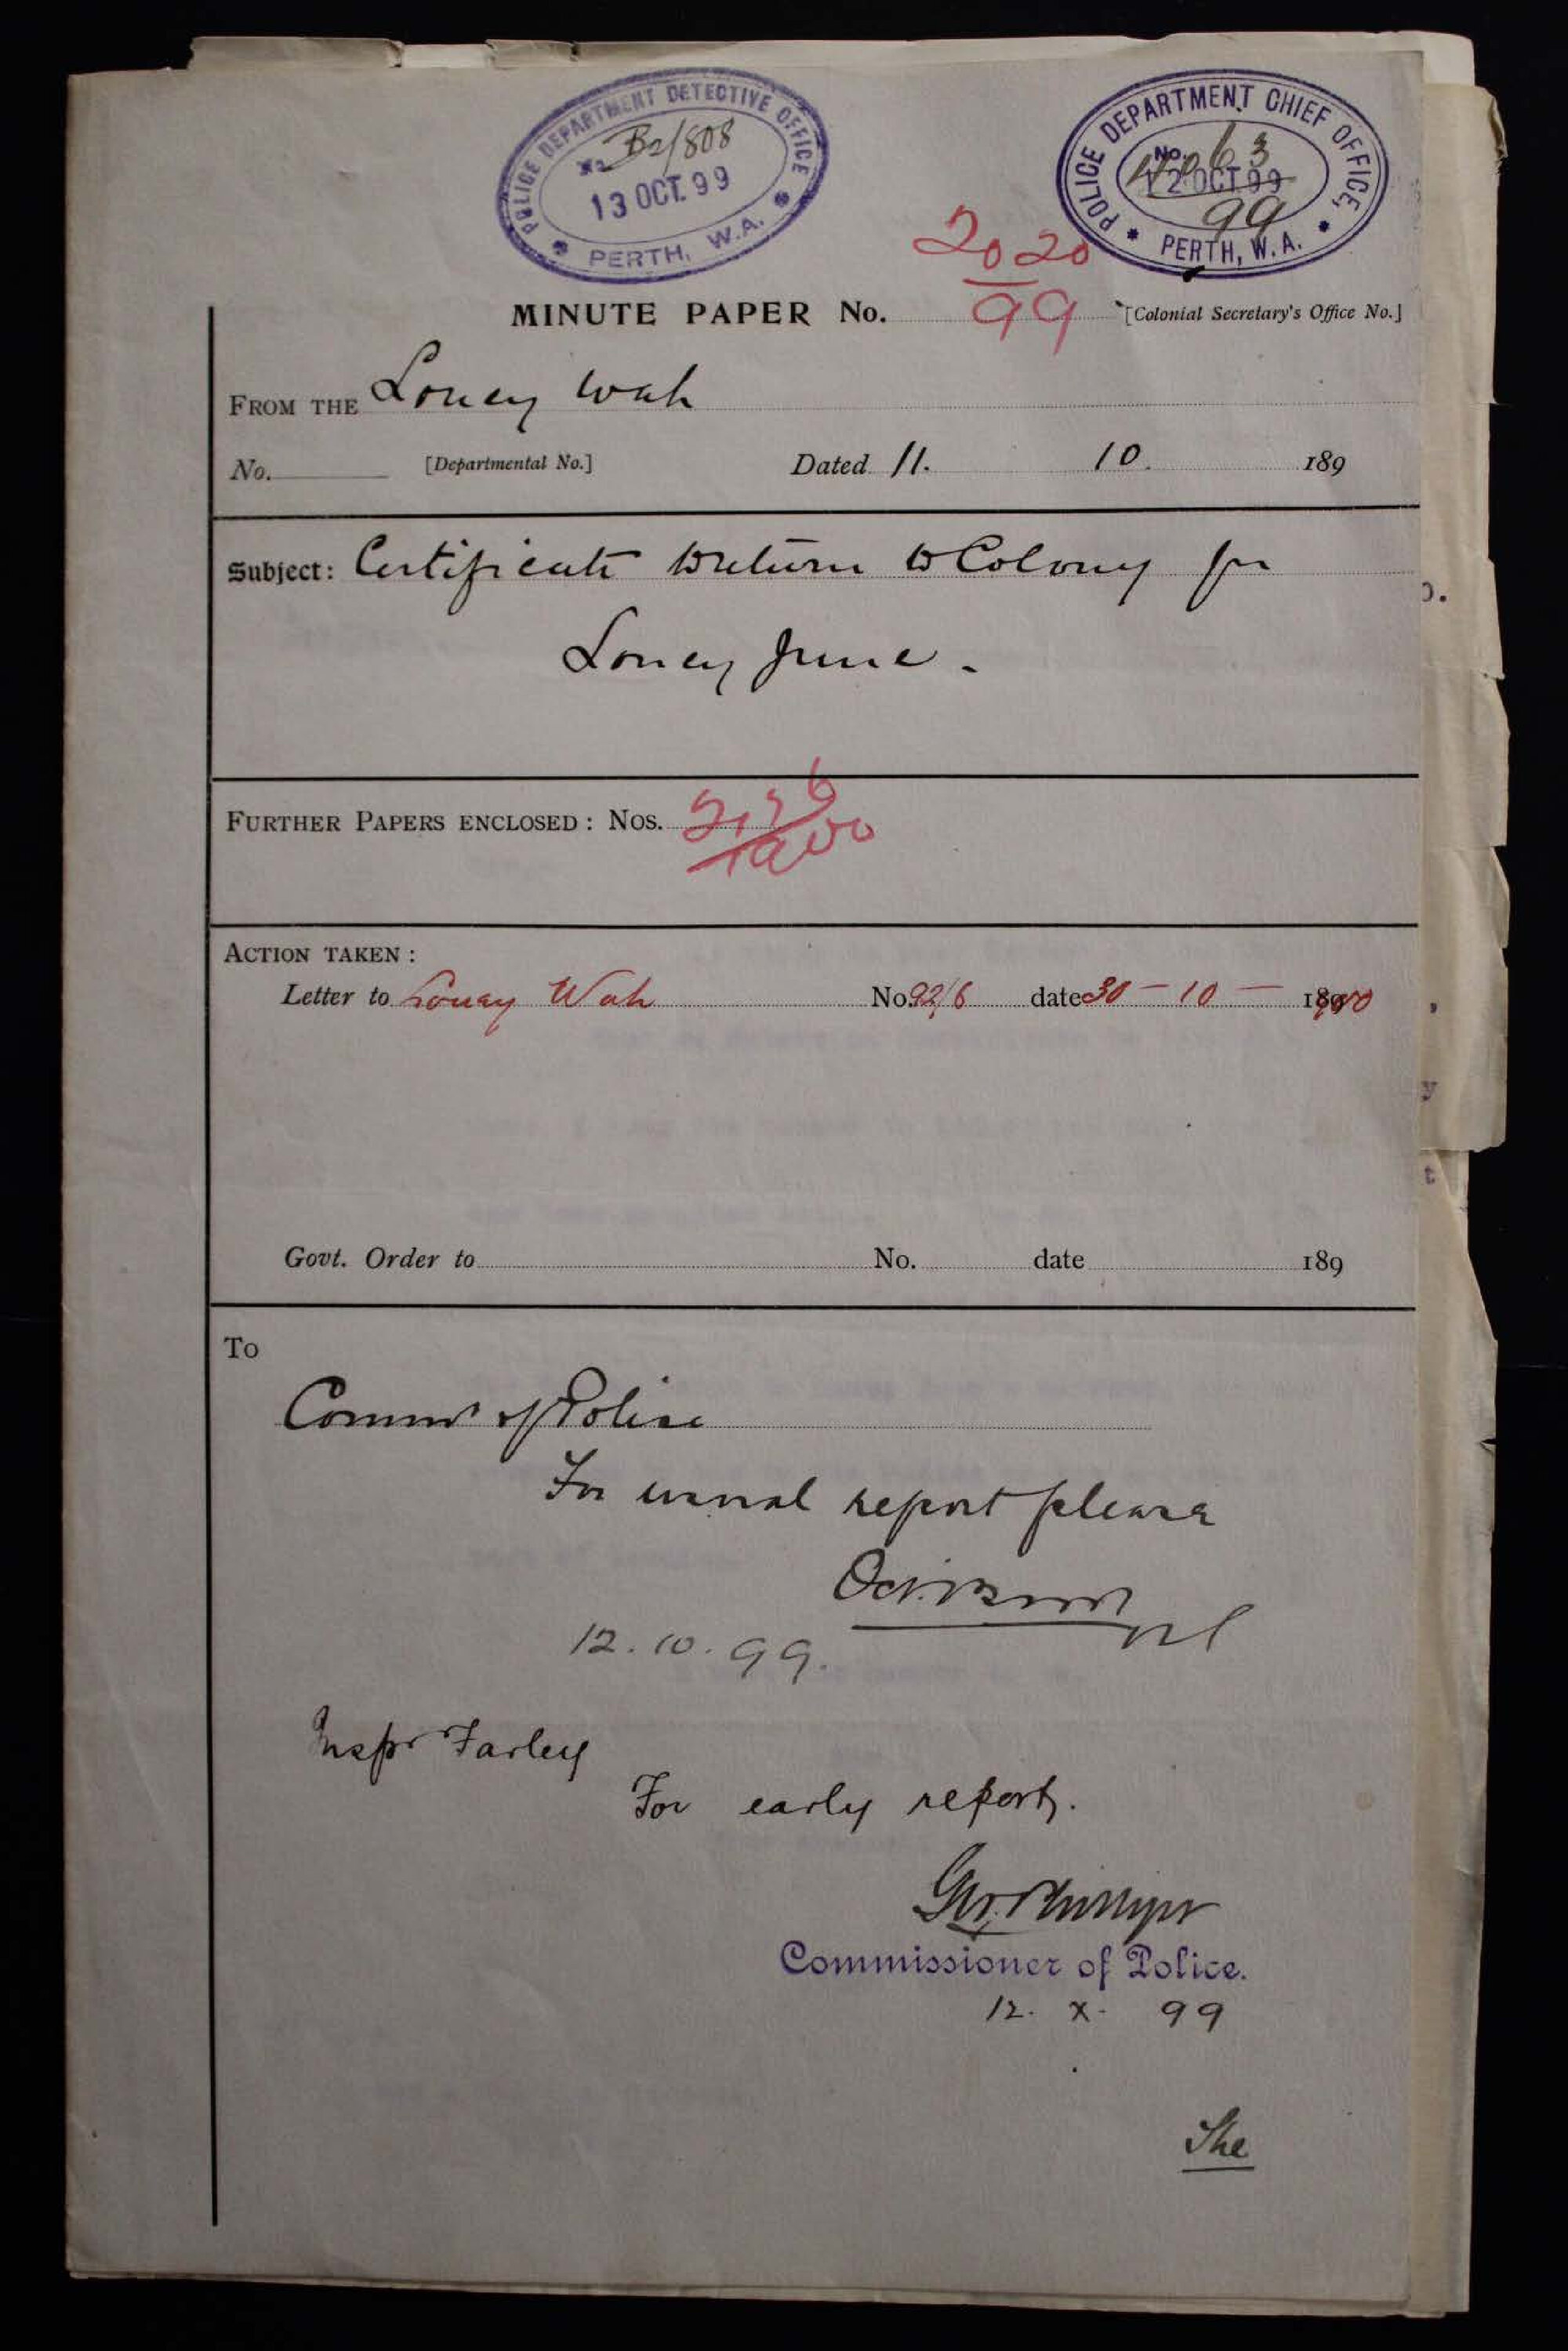 POLICE DEPARTMENT DETECTIVE OFFICE
No. B2/808
13 OCT. 99
PERTH, W.A.
POLICE DEPARTMENT CHIEF OFFICE,
No.
12 OCT 99
99
PERTH, W.A.
2020
99
MINUTE PAPER No. [Colonial Secretary's Office No.]
FROM THE Loney Wah
No. [Departmental No.] Dated 11. 10. 189
Subject: Certificate to return to Colony for
Loney June.
FURTHER PAPERS ENCLOSED: Nos.
1900
ACTION TAKEN:
Letter to Loney Wah No. 92/6 date 30 – 10 – 1900
Govt. Order to No. date 189
To
Commr of Police
For usual report please
12.10.99.
Inspr Farley
For early report.
Geo. Phillips
Commissioner of Police.
12. X. 99
The